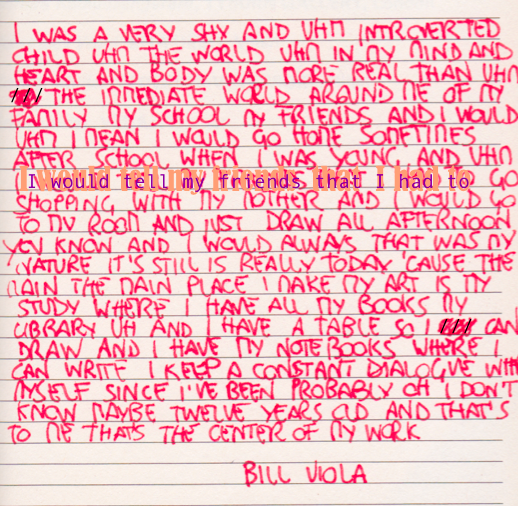 I WAS A VERY SHY AND UHM INTROVERTED
CHILD UHM THE WORLD UHM IN MY MIND AND
HEART AND BODY WAS MORE REAL THAN UHM
THE IMMEDIATE WORLD AROUND ME OF MY
FAMILY MY SCHOOL MY FRIENDS AND I WOULD
UHM I MEAN I WOULD GO HOME SOMETIMES
AFTER SCHOOL WHEN I WAS YOUNG AND UHM
I would tell my friends that I had to GO
SHOPPING WITH MY MOTHER AND I WOULD GO
TO MY ROOM AND JUST DRAW ALL AFTERNOON
YOU KNOW AND I WOULD ALWAYS THAT WAS MY
NATURE IT'S STILL IS REALLY TODAY 'CAUSE THE
MAIN THE MAIN PLACE I MAKE MY ART IS MY
STUDY WHERE I HAVE ALL MY BOOKS MY
LIBRARY UH AND I HAVE A TABLE SO I CAN
DRAW AND I HAVE MY NOTEBOOKS WHERE I
CAN WRITE I KEEP A CONSTANT DIALOGUE WITH
MYSELF SINCE I'VE BEEN PROBABLY OH I DON'T
KNOW MAYBE TWELVE YEARS OLD AND THAT'S
TO ME THATS THE CENTER OF MY WORK
BILL VIOLA